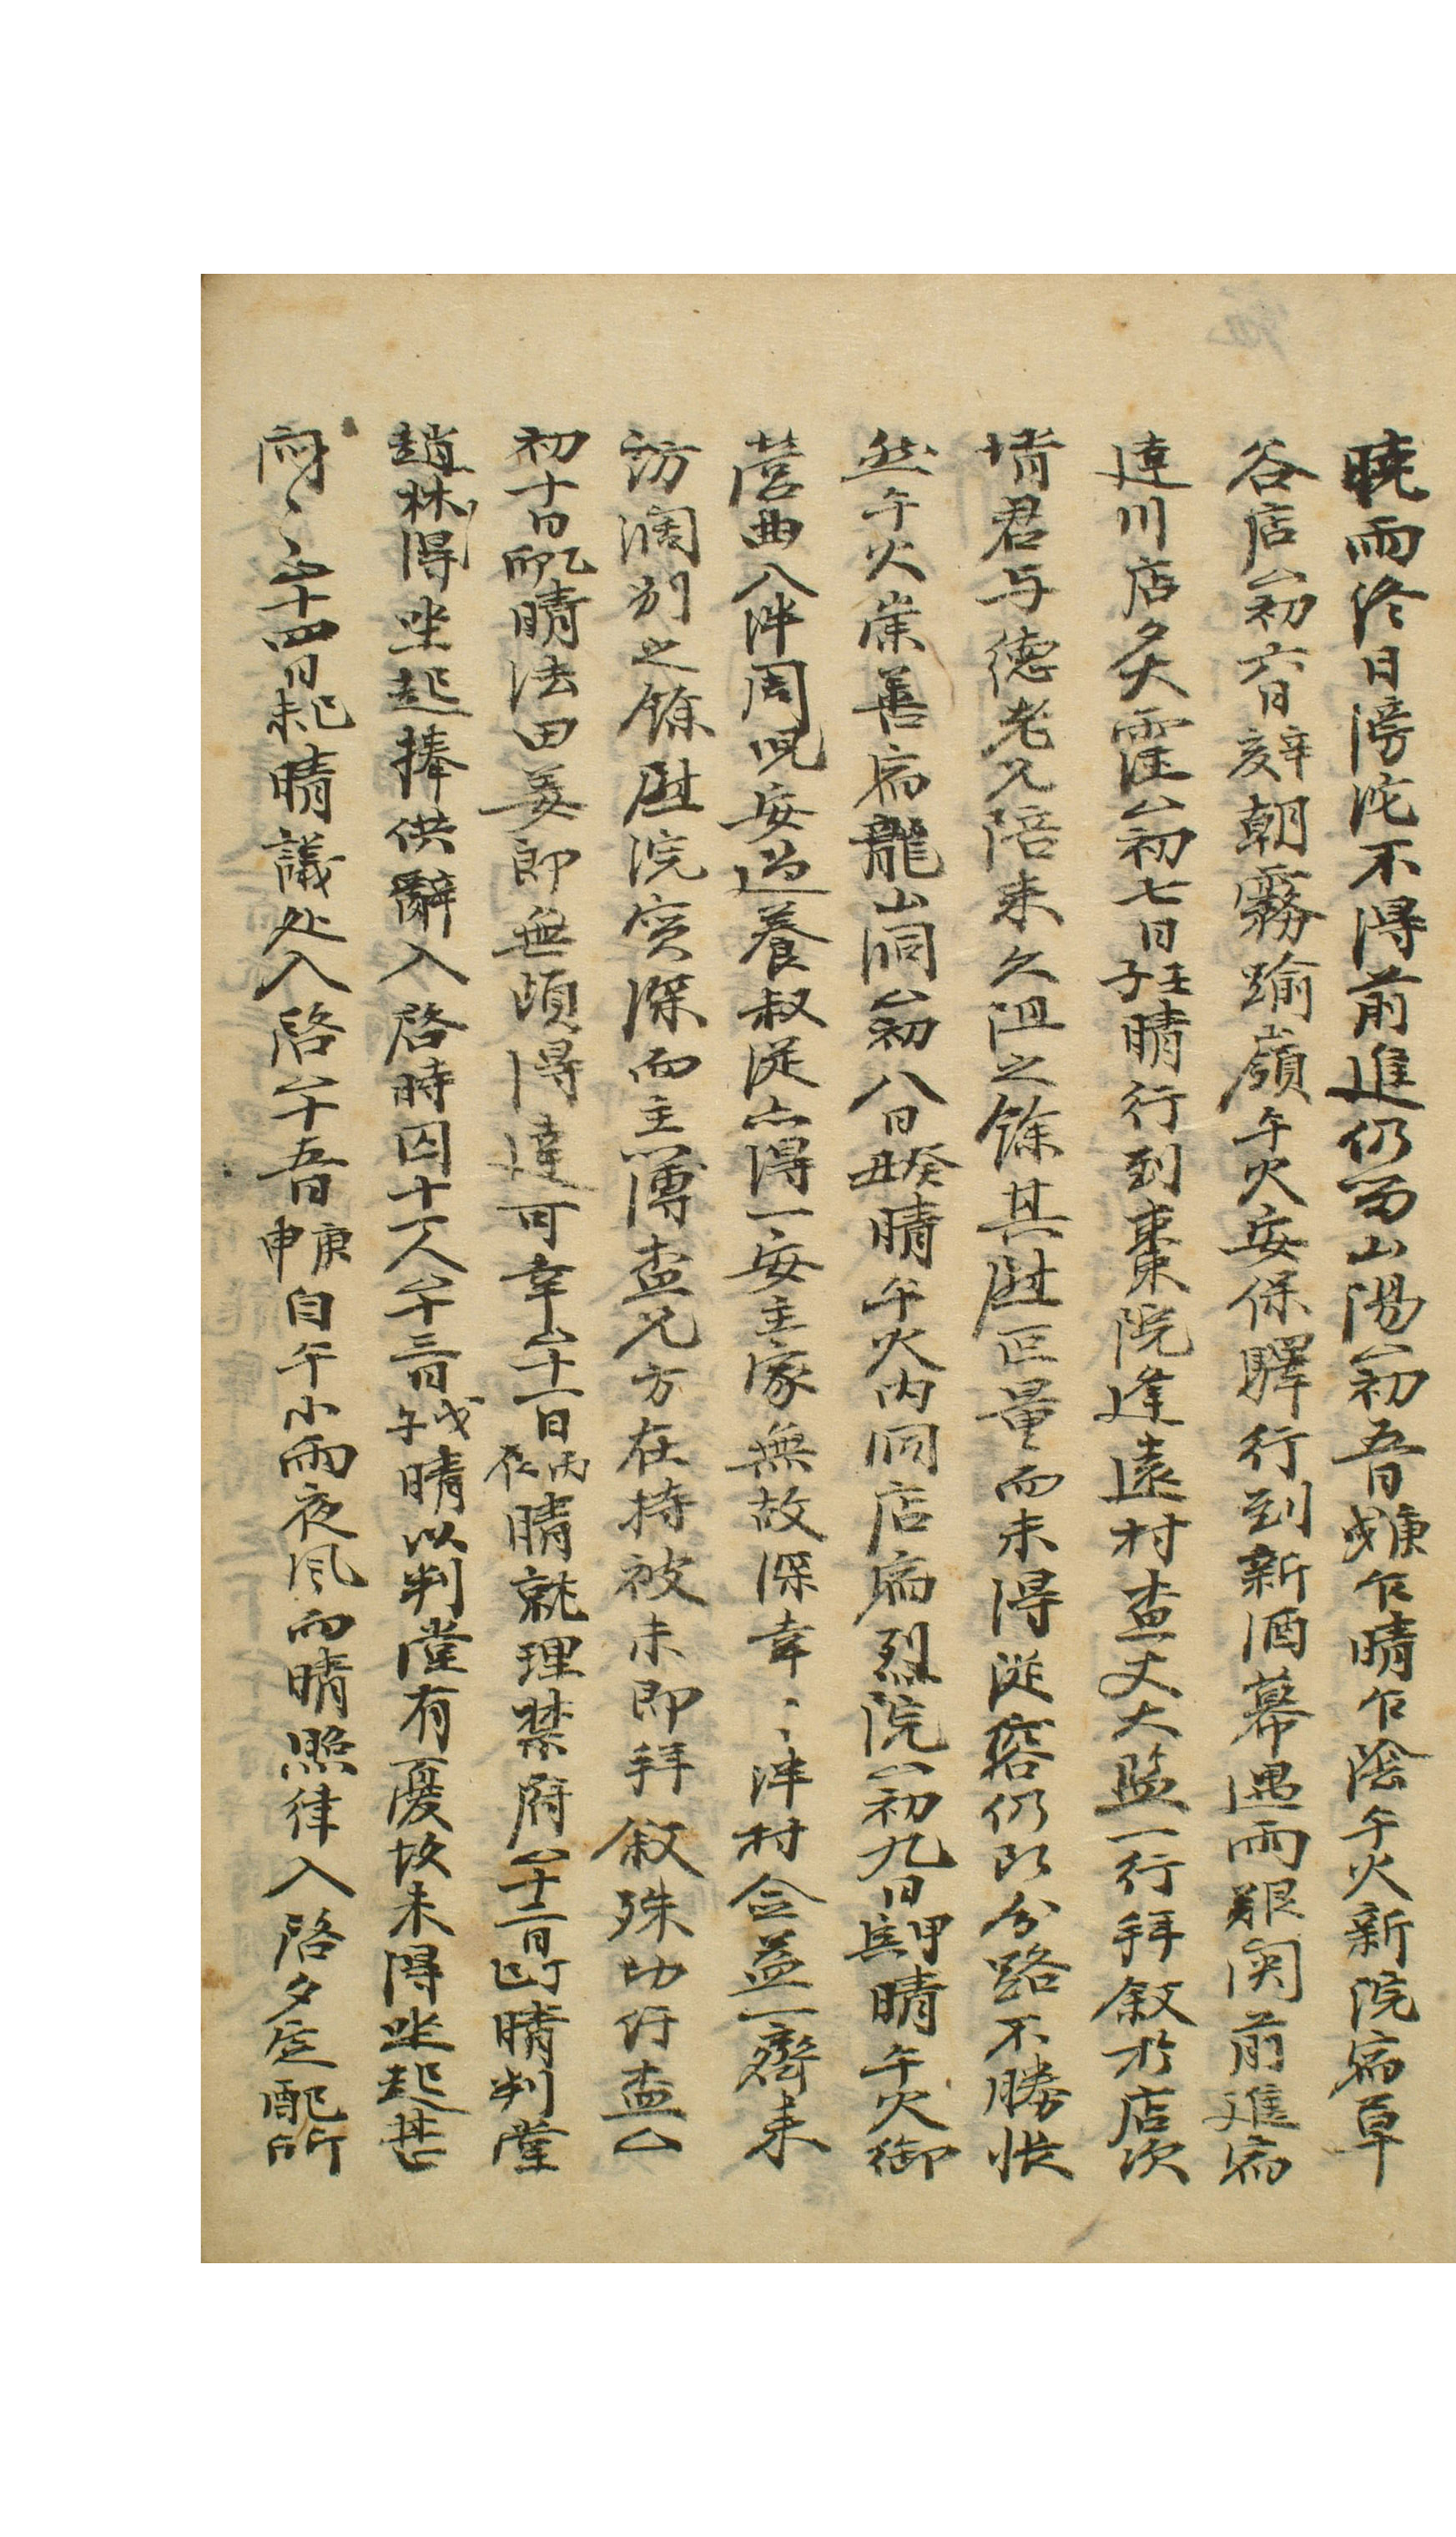 曉雨終日滂沱不得前進仍留山陽初五日庚戌乍晴乍陰午火新院宿草
谷店初六日辛亥朝霧踰嶺午火安保驛行到新酒幕遇雨艱関前進宿
達川店夕大霔初七日壬子晴行到棗院逢遠村査丈大監一行拜叙於店次
壻君与德老兄陪来久阻之餘其慰叵量而未得從容仍以分路不勝悵
然午火崇善宿龍山洞初八日癸丑晴午火內洞店宿烈院初九日甲寅晴午火御
營曲入泮周兒安過養叔從亦得一安主家無故深幸〻泮村僉益一齊来
訪濶別之餘慰浣实深而主簿査兄方在持被未即拜叙殊切行盃
初十日乙卯晴法田姜郎無頉得達可幸十一日丙辰晴就理禁府十二日丁巳晴判堂
趙林得坐起捧供辭入啓時囚十一人十三日戊午晴以判堂有憂故未得坐起甚
悶〻十四日己未晴議处入啓十五日庚申自午小雨夜風而晴照律入啓夕定配所